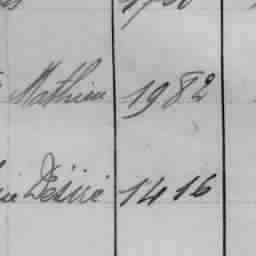 Mathieu 1982
Désiré 1416